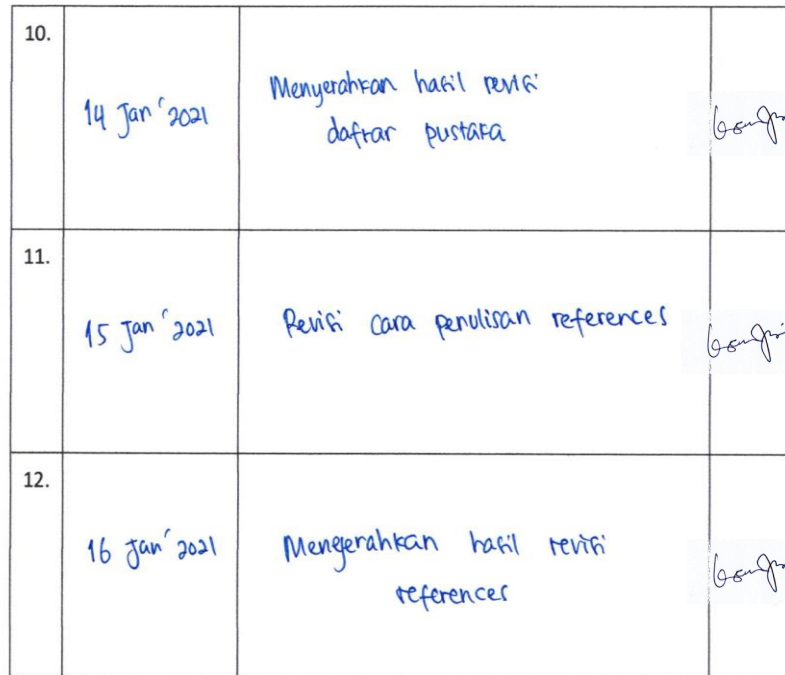 10.
14 Jan' 2021
Menyerahkan hasil revisi
daftar pustaka
11.
15 Jan' 2021
Revisi cara penulisan references
12.
16 Jan' 2021
Mengerahkan hasil revisi
references